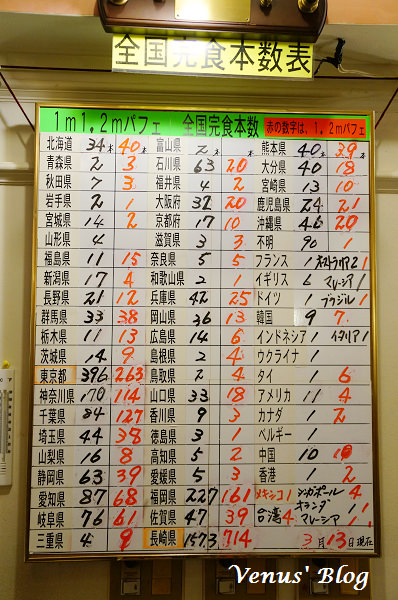 全国完食本数表
1m1.2mパフェ 全国完食本数 赤の数字は、1.2mパフェ
北海道 34本 40本 富山県 2本 熊本県 40本 39本
青森県 2 3 石川県 63 20 大分県 40 18
秋田県 7 3 福井県 4 2 宮崎県 13 10
岩手県 2 1 大阪府 32 20 鹿児島県 24 21
宮城県 14 2 京都府 17 10 沖縄県 46 20
山形県 4 滋賀県 3 3 不明 90 1
福島県 11 15 奈良県 5 5 フランス 1 オーストラリア 2 1
新潟県 17 4 和歌山県 2 1 イギリス 6 マレーシア 1
長野県 21 12 兵庫県 42 25 ドイツ 1 ブラジル 1
群馬県 33 38 岡山県 36 13 韓国 9 7
栃木県 11 13 広島県 14 6 インドネシア 1 イタリア 1
茨城県 14 9 島根県 2 4 ウクライナ 1
東京都 396 263 鳥取県 2 4 タイ 1 6
神奈川県 170 114 山口県 33 18 アメリカ 11 4
千葉県 84 127 香川県 9 3 カナダ 1 2
埼玉県 44 38 徳島県 3 1 ベルギー 1
山梨県 16 8 高知県 5 2 中国 10
静岡県 63 39 愛媛県 5 3 香港 1 2
愛知県 87 68 福岡県 227 161 メキシコ 1 シンガポール 4
岐阜県 76 61 佐賀県 47 39 台湾 4 オランダ 1 マレーシア 1
三重県 4 9 長崎県 1573 714 3月13日現在
Venus' Blog